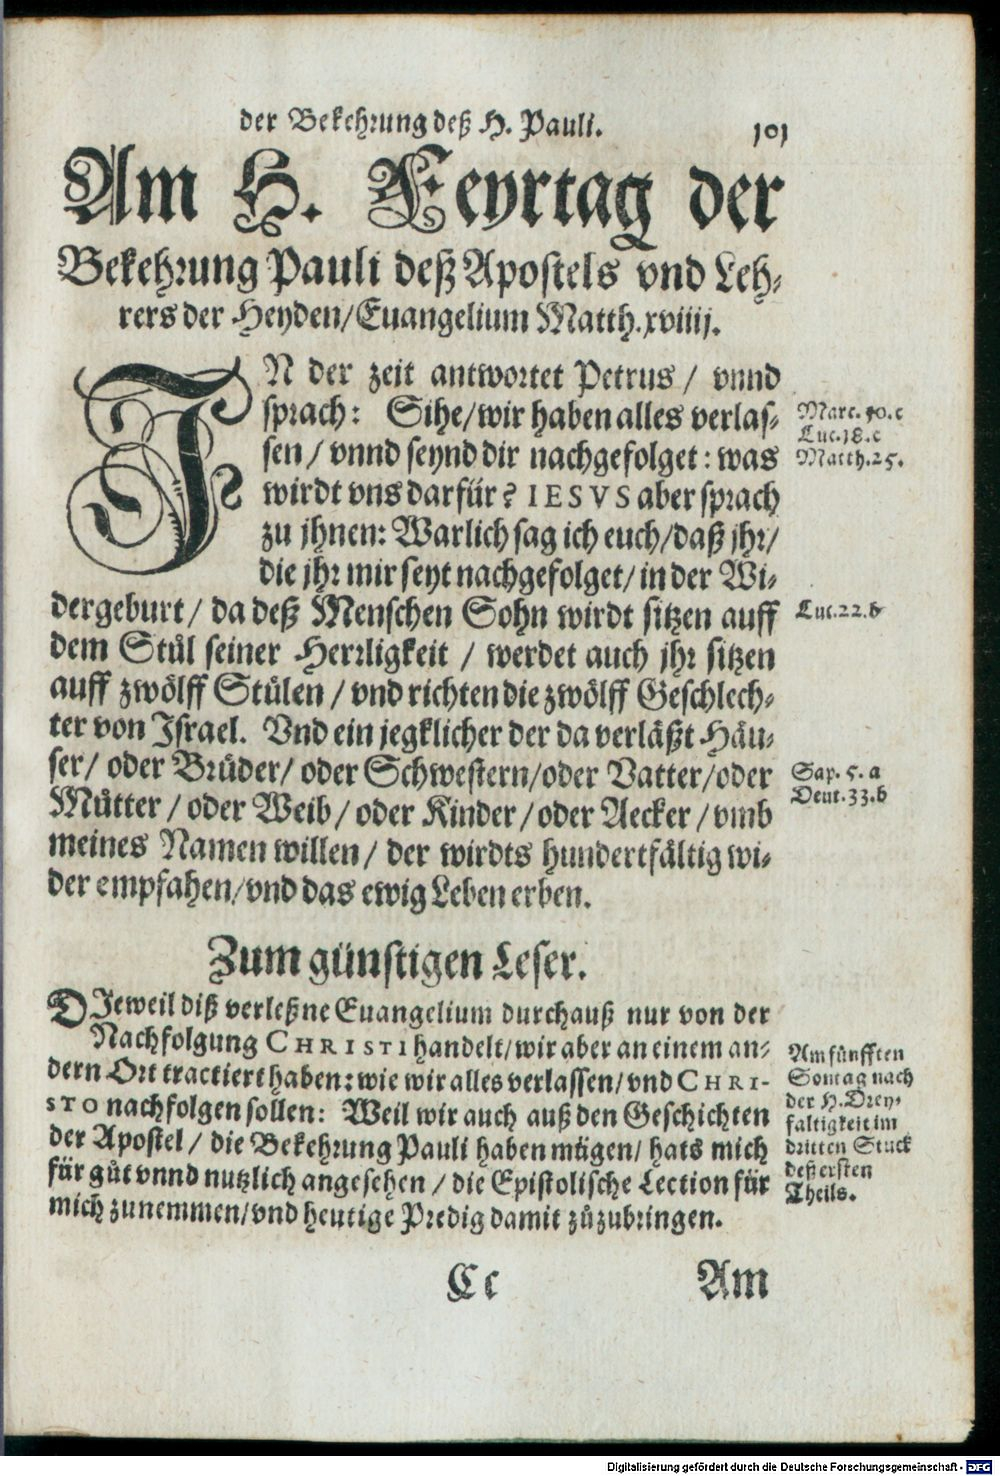 der Bekehrung deß H. Pauli. 101
Am H. Feyrtag der
Bekehrung Pauli deß Apostels vnd Leh-
rers der Heyden/Euangelium Matth.xviiij.
IN der zeit antwortet Petrus / vnnd
sprach: Sihe/wir haben alles verlas-
sen / vnnd seynd dir nachgefolget: was
wirdt vns darfür? IESVS aber sprach
zu jhnen: Warlich sag ich euch/daß jhr/
die jhr mir seyt nachgefolget/ in der Wi-
dergeburt/ da deß Menschen Sohn wirdt sitzen auff
dem Stůl seiner Herrligkeit / werdet auch jhr sitzen
auff zwölff Stůlen / vnd richten die zwölff Geschlech-
ter von Israel. Vnd ein jegklicher der da verläßt Häu-
ser/ oder Brüder/ oder Schwestern/oder Vatter/oder
Můtter / oder Weib / oder Kinder / oder Aecker / vmb
meines Namen willen / der wirdts hundertfältig wi-
der empfahen/vnd das ewig Leben erben.
Marc. 10. c
Luc. 18. c
Matth. 25.
Luc. 22. b
Sap. 5. a
Deut. 33. b
Zum günstigen Leser.
DJeweil diß verleßne Euangelium durchauß nur von der
Nachfolgung CHRISTI handelt/wir aber an einem an-
dern Ort tractiert haben: wie wir alles verlassen/vnd CHRI-
STO nachfolgen sollen: Weil wir auch auß den Geschichten
der Apostel / die Bekehrung Pauli haben mügen/ hats mich
für gůt vnnd nutzlich angesehen / die Epistolische Lection für
mich zunemmen/vnd heutige Predig damit zůzubringen.
Am fünfften
Sontag nach
der H. Drey-
faltigkeit im
dritten Stuck
deß ersten
Theils.
Cc Am
Digitalisierung gefördert durch die Deutsche Forschungsgemeinschaft - DFG